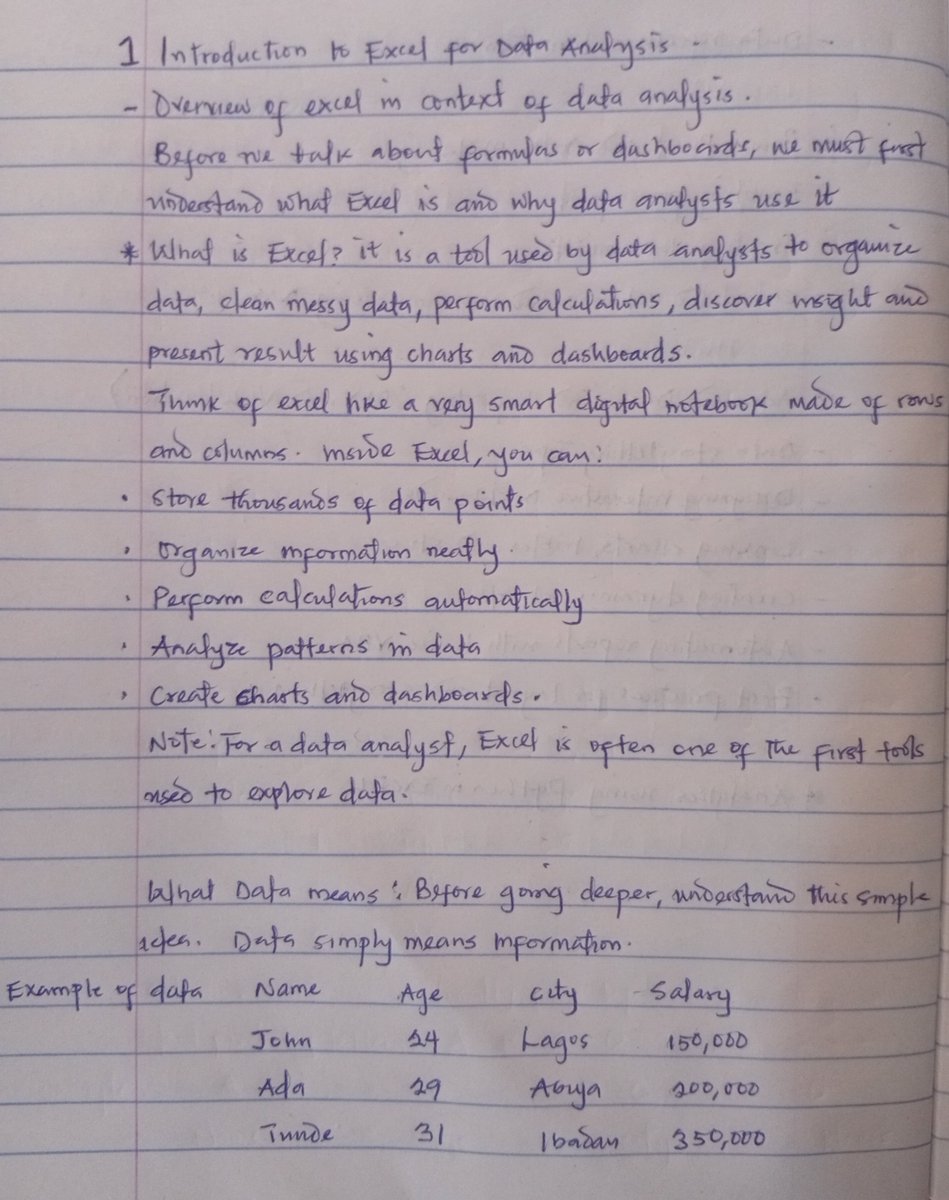 1 Introduction to Excel for Data Analysis.
- Overview of excel in context of data analysis.
Before we talk about formulas or dashboards, we must first
understand what Excel is and why data analysts use it
* What is Excel? it is a tool used by data analysts to organize
data, clean messy data, perform calculations, discover insight and
present result using charts and dashboards.
Think of excel like a very smart digital notebook made of rows
and columns. inside Excel, you can:
• Store thousands of data points
• Organize information neatly.
• Perform calculations automatically
• Analyze patterns in data
• Create charts and dashboards.
Note: For a data analyst, Excel is often one of The first tools
used to explore data.
What Data means: Before going deeper, understand this simple
idea. Data simply means information.
Example of data Name Age City Salary
John 24 Lagos 150,000
Ada 29 Abuja 200,000
Tunde 31 Ibadan 350,000